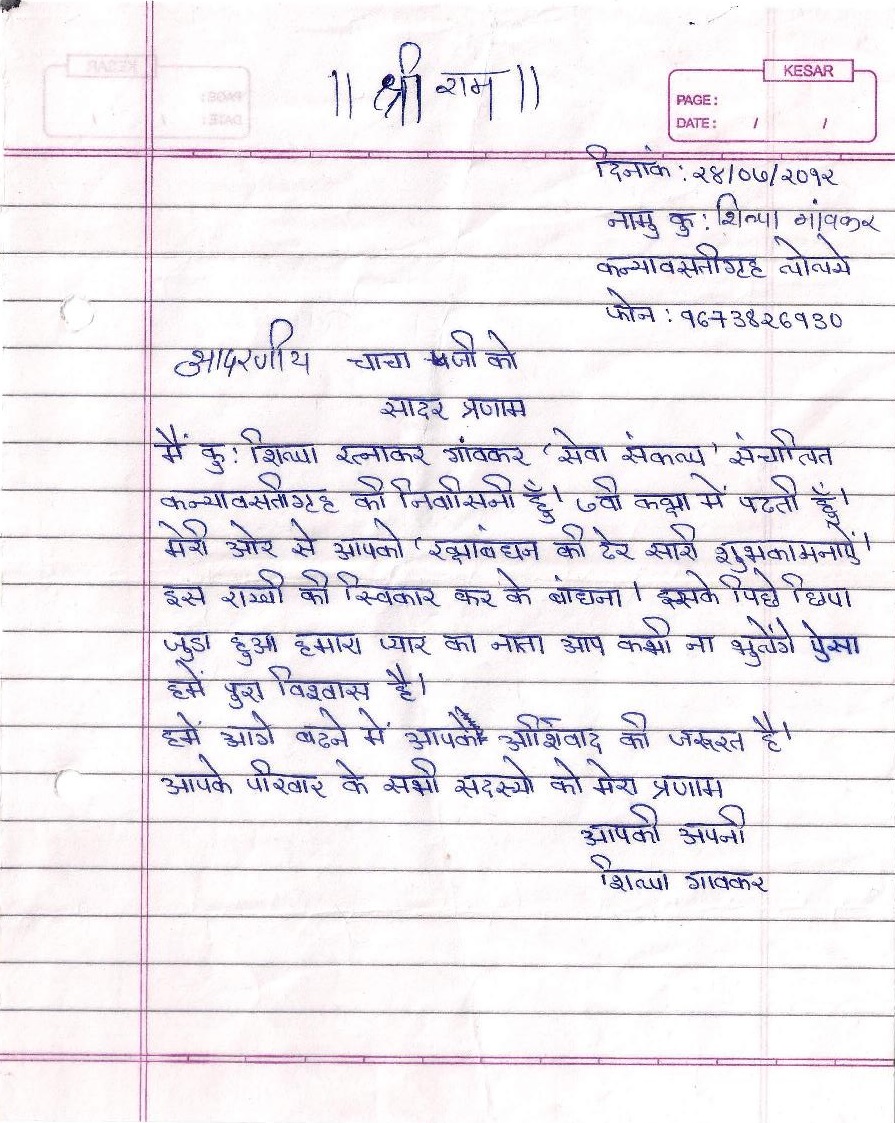 ॥ श्री राम ॥
KESAR
PAGE:
DATE: / /
दिनांक : २४/०७/२०१२
नामु कु : शिल्पा गांवकर
कन्यावसतीगृह लोलये
फोन : ९673826930
आदरणीय चाचा जी को
सादर प्रणाम
मैं कु : शिल्पा रत्नाकर गांवकर 'सेवा संकल्प' संचालित
कन्यावसतीगृह की निवासिनी हूँ। ७वी कक्षा में पढती हूँ।
मेरी ओर से आपको 'रक्षाबंधन की ढेर सारी शुभकामनाएँ।
इस राखी को स्विकार कर के बांधना। इसके पिछे छिपा
जुडा हुआ हमारा प्यार का नाता आप कभी ना भुलेंगे ऐसा
हमें पुरा विश्वास है।
हमें आगे बढने में आपके आर्शिवाद की जरूरत है।
आपके परिवार के सभी सदस्यो को मेरा प्रणाम
आपकी अपनी
शिल्पा गावकर